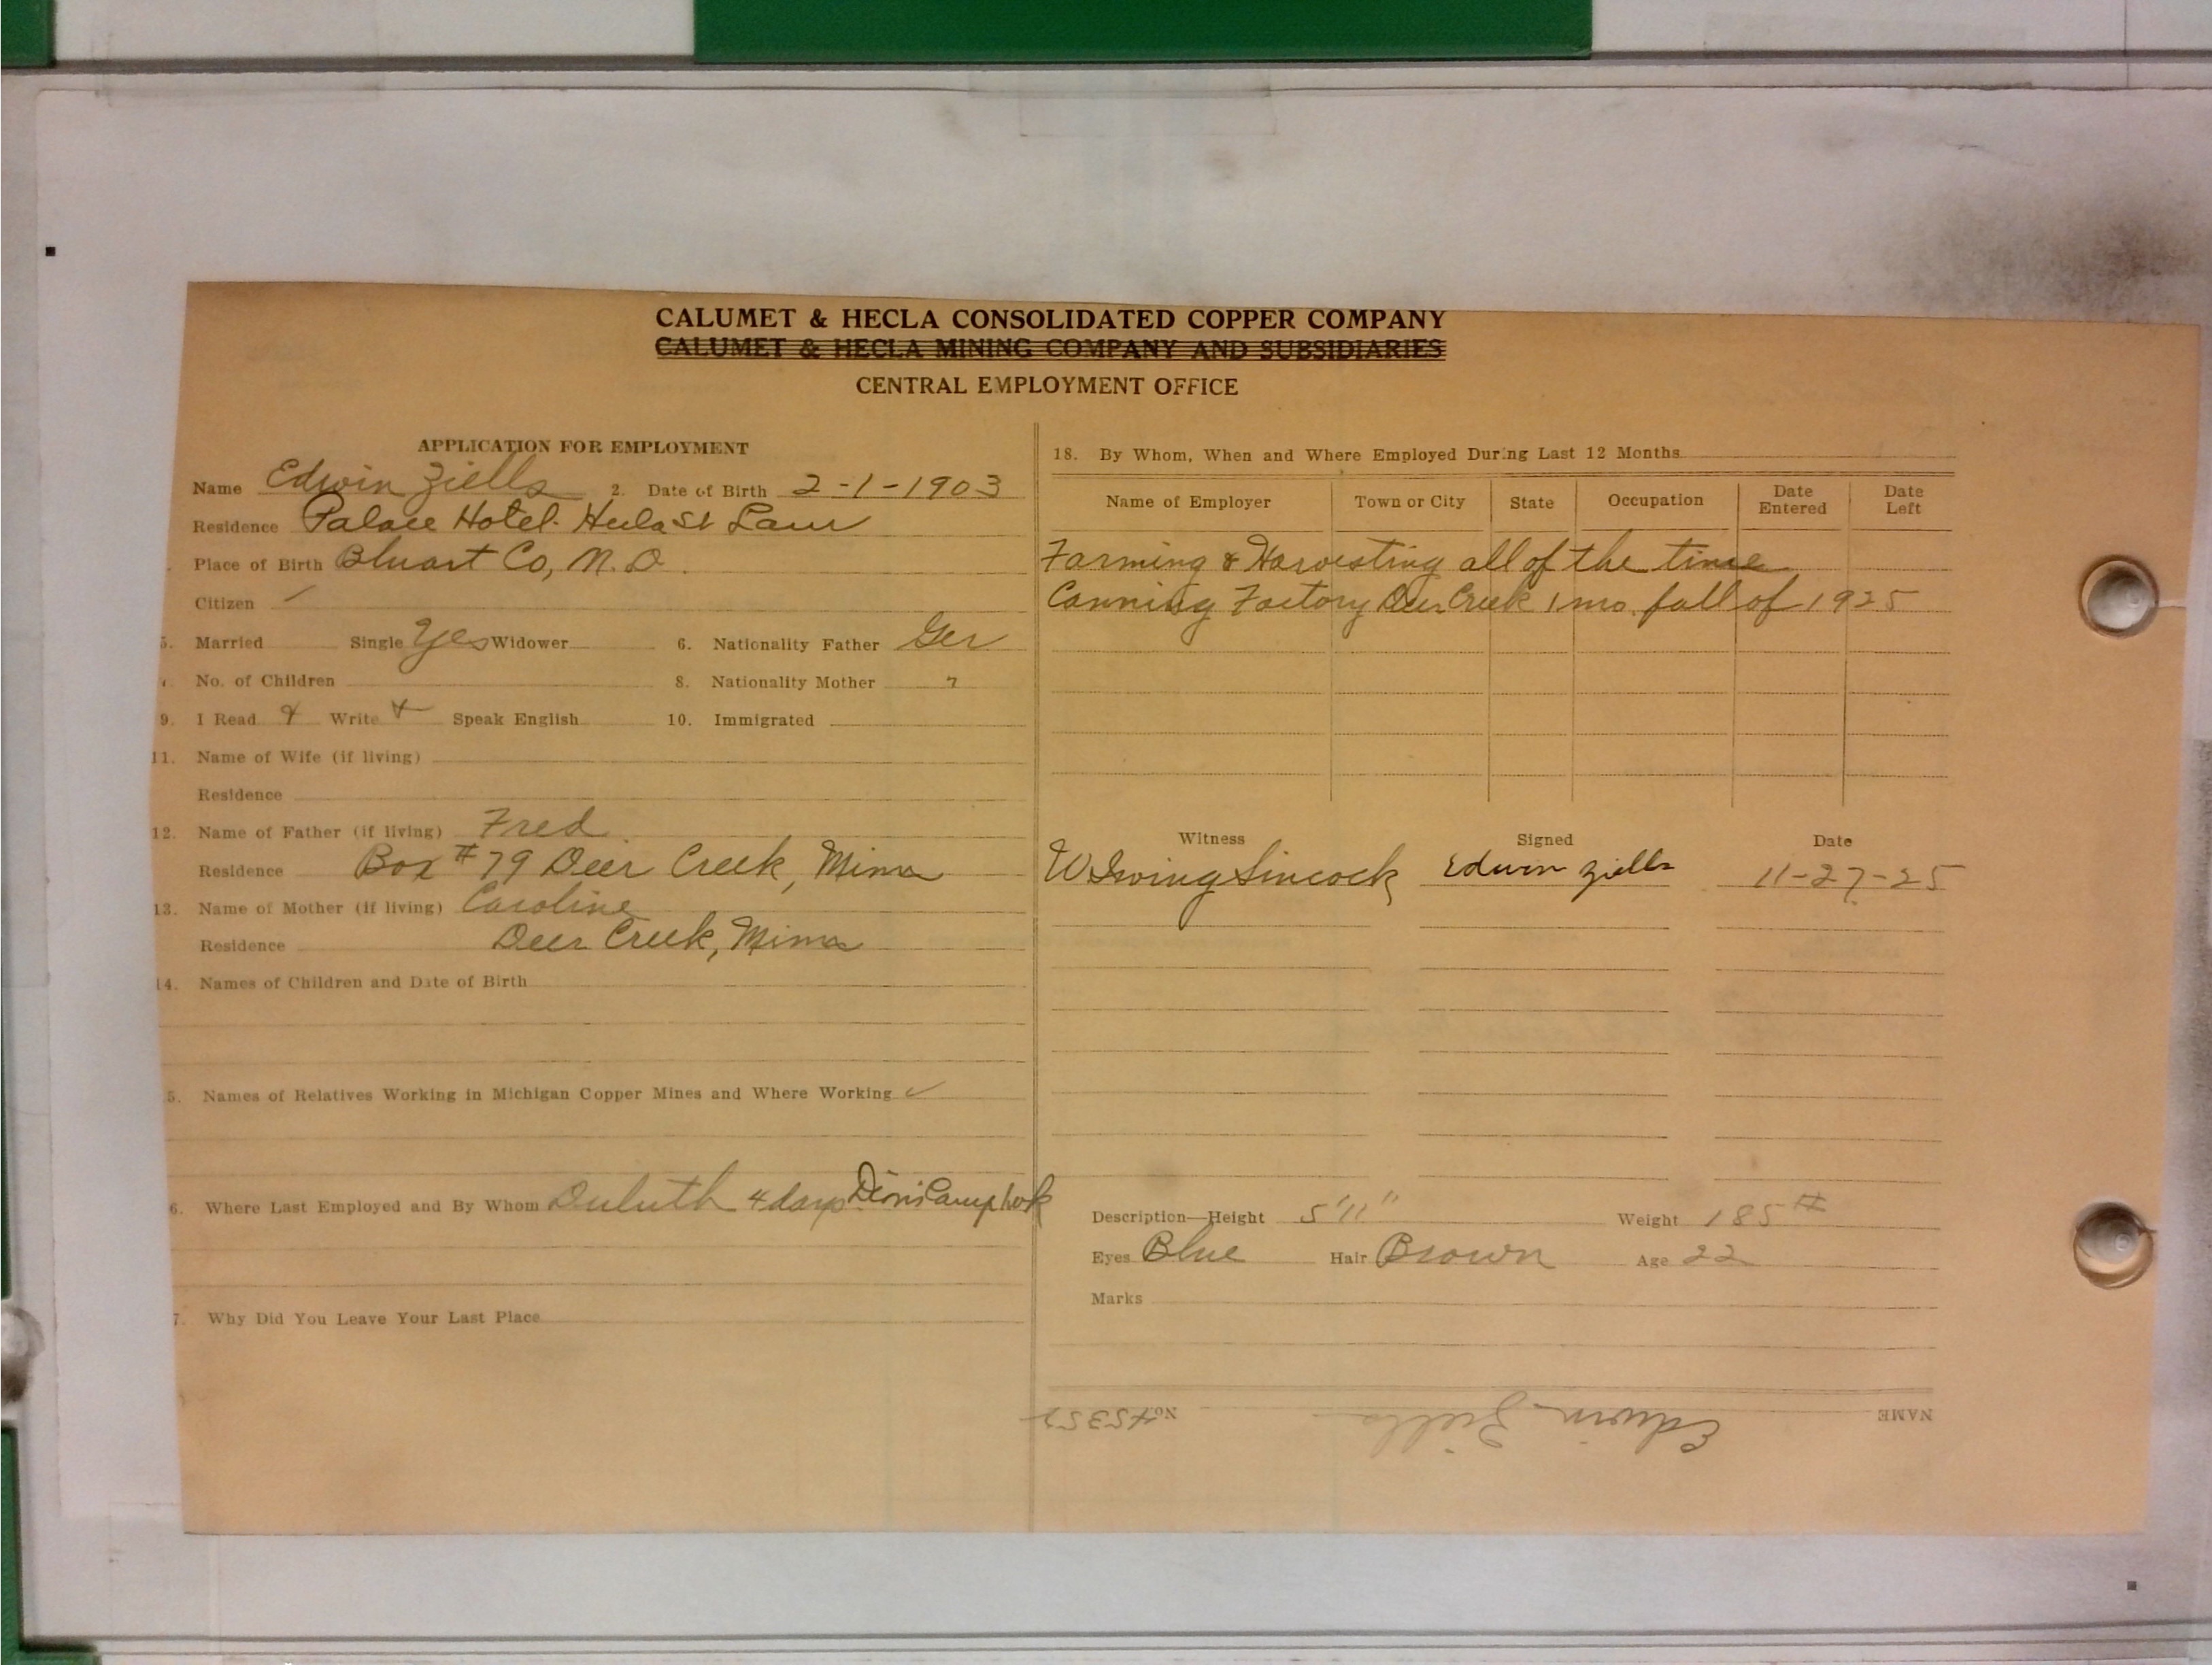 CALUMET & HECLA CONSOLIDATED COPPER COMPANY
CALUMET & HECLA MINING COMPANY AND SUBSIDIARIES
CENTRAL EMPLOYMENT OFFICE
APPLICATION FOR EMPLOYMENT
Name Edwin Ziells 2. Date of Birth 2-1-1903
Residence Palace Hotel. Hecla St Laur
Place of Birth Co, N.D.
Citizen
5. Married Single Yes Widower 6. Nationality Father Ger
No. of Children 8. Nationality Mother "
9. I Read Write Speak English 10. Immigrated
11. Name of Wife (if living)
Residence
12. Name of Father (if living) Fred
Residence Box #79 Deer Creek, Minn
13. Name of Mother (if living) Caroline
Residence Deer Creek, Minn
14. Names of Children and Date of Birth
5. Names of Relatives Working in Michigan Copper Mines and Where Working ✓
6. Where Last Employed and By Whom Duluth 4 days Camp
7. Why Did You Leave Your Last Place
18. By Whom, When and Where Employed During Last 12 Months
Name of Employer Town or City State Occupation Date Entered Date Left
Farming & Harvesting all of the time
Canning Factory Deer Creek 1 mo. fall of 1925
Witness Signed Date
W Irving Sincock Edwin Ziells 11-27-25
Description—Height 5'11" Weight 185 #
Eyes Blue Hair Brown Age 22
Marks
NAME Edwin Ziells No.